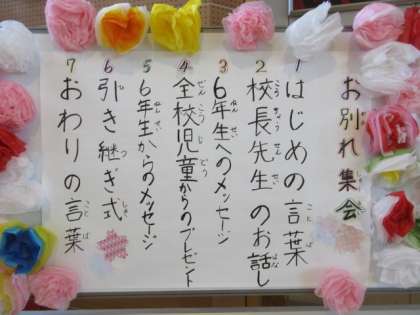 お別れ集会
1 はじめの言葉
2 校長先生のお話し
3 6年生へのメッセージ
4 全校児童からのプレゼント
5 6年生からのメッセージ
6 引き継ぎ式
7 おわりの言葉